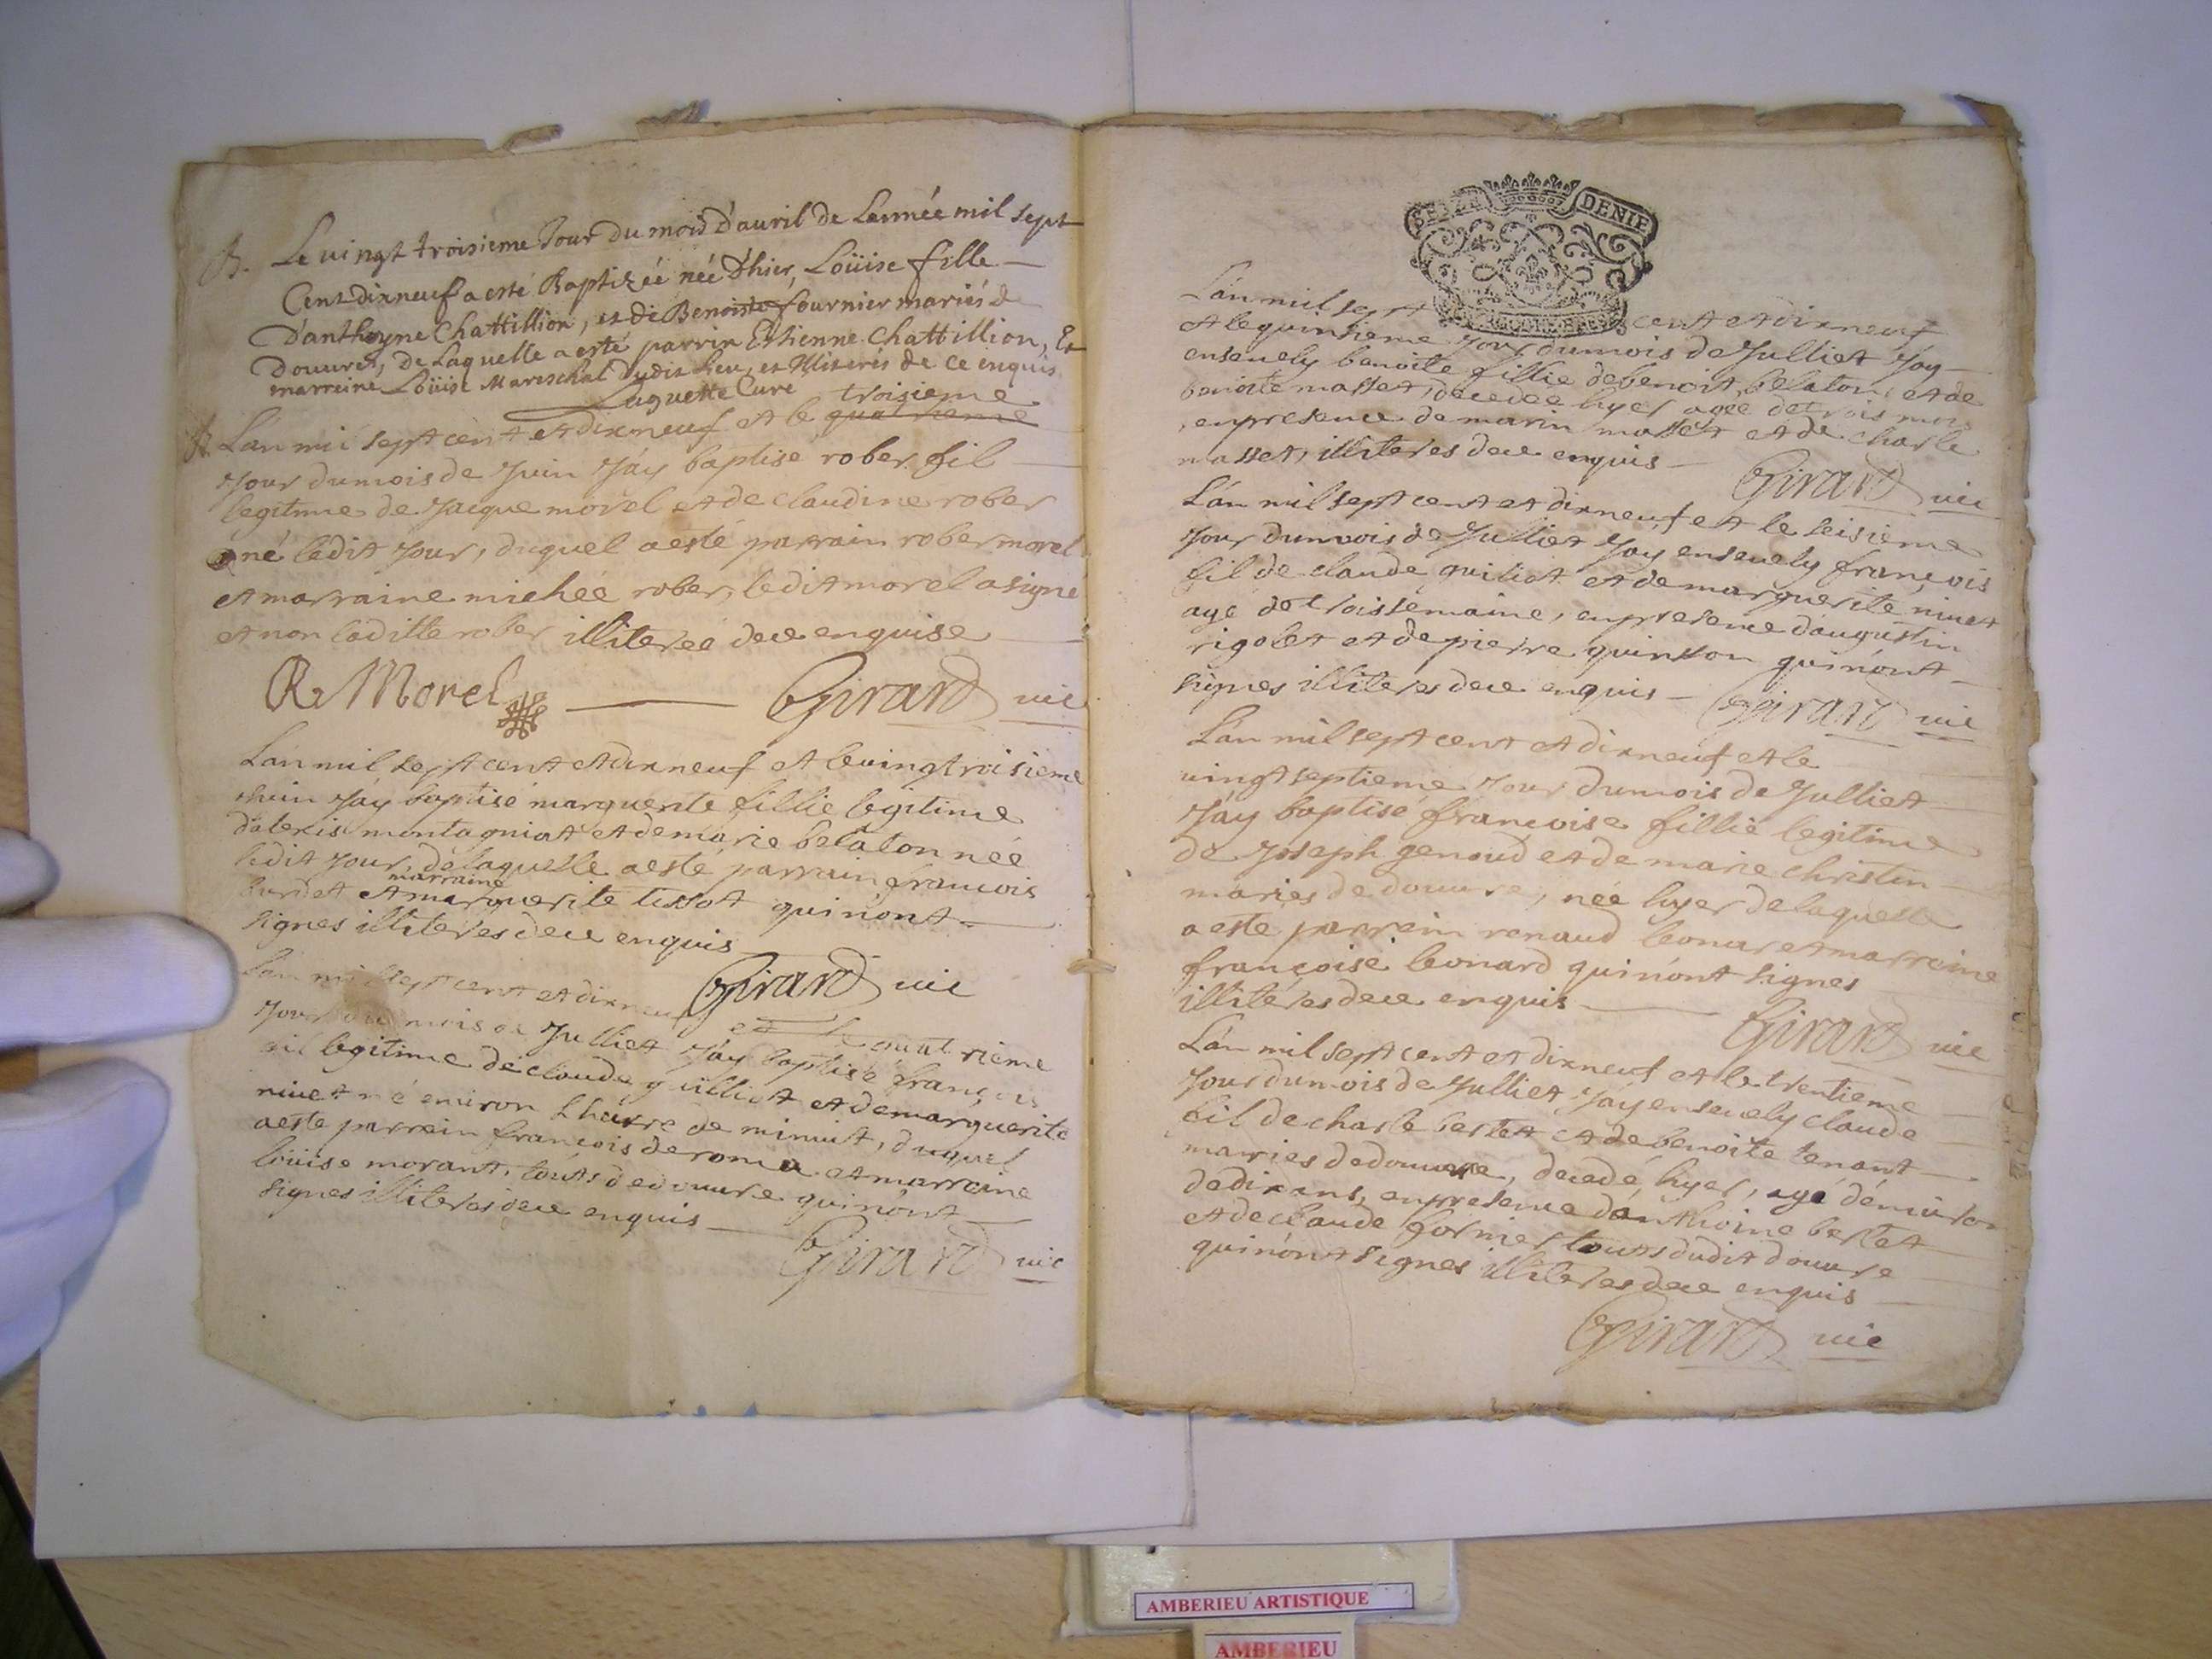 B. Le vingt troisieme Jour du mois D'auril de Lannée mil sept
Cent dixneuf a esté Baptizéé néé D'hier, Loüise fille
D'anthoyne Chattillion, et de Benoiste fournier mariés de
Douures, De Laquelle a esté parrin Estienne Chattillion, Et
marreine Loüise Mareschal dudit Lieu, et Illiterés de ce enquis
Luguette Curé
troisieme
B. Lán mil sept cent et dixneuf et le quatrieme
Jour du mois de Juin J'áy baptisé rober fil
legitime de Jacque morel et de claudine rober
né ledit Jour, duquel a esté parrain rober morel
et marraine michéé rober, ledit morel a signé
et non laditte rober illiteréé dece enquise
R Morel Girard vic
Lán mil sept cent et dixneuf et le vingtroisieme
Juin J'áy baptisé marguerite fillie legitime
d'alexis montagniat et de marie belaton néé
ledit Jour, de laquelle a esté parrain francois
marraine
burdet et marguerite tissot qui nont
signes illiterés dece enquis
Girard vic
Lán mil sept cent et dixneuf et le quatrieme
Jour du mois de Julliet J'áy baptisé françois
fil legitime de claude guilliot et de marguerite
niuet né enuiron L'heurre de minuit, duquel
a esté parrain francois deroma et marraine
loüise morant, touts de douure qui nónt
signes illiteres dece enquis
Girard vic
SEIZE DENIE
Lán mil sept cent et dixneuf
et le quinsieme Jour du mois de Julliet J'ay
enseuely benoite fillie de benoit belaton et de
benoite masset, decedéé hyer agéé de trois mois
, en presence de marin masset et de charle
masset, illiteres dece enquis
Girard vic
Lán mil sept cent et dixneuf et le seisieme
Jour du mois de Julliet J'ay enseuely françois
fil de claude guiliot et de marguerite niuet
agé de trois semaine, en presence d'augustin
rigolet et de pierre quinson qui nónt
signes illiteres dece enquis
Girard vic
Lán mil sept cent et dixneuf et le
uingt septieme Jour du mois de Julliet
J'áy baptisé françoise fillie legitime
de Joseph genoud et de marie christin
maries de douure, néé hyer de laquelle
a esté parrein renaud leonar et marreine
françoise leonard qui nónt signes
illitéres dece enquis
Girard vic
Lán mil sept cent et dixneuf et le trentieme
Jour du mois de Julliet J'áy enseuely claude
fil de charle berlet et de benoite tenant
maries de douure, decedé hyer, agé d'enuiron
de dix ans, en presence d'ánthoine berlet
et de claude fornier touts dudit douure
qui nónt signes illiteres dece enquis
Girard vic
AMBERIEU ARTISTIQUE
AMBERIEU